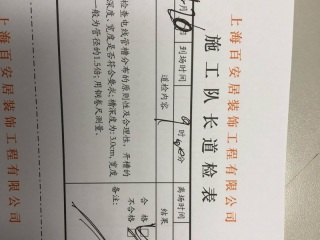 上海百安居装饰工程有限公司
施工队长道检表
到场时间 时 分 离场时间
道检内容 结果
检查电线管槽分布的原则性及合理性，开槽的
深度、宽度是否符合要求；槽深度为：3.0cm，宽度
一般为管径的1.5倍；用钢卷尺测量。
合格
不合格
备注：
上海百安居装饰工程有限公司